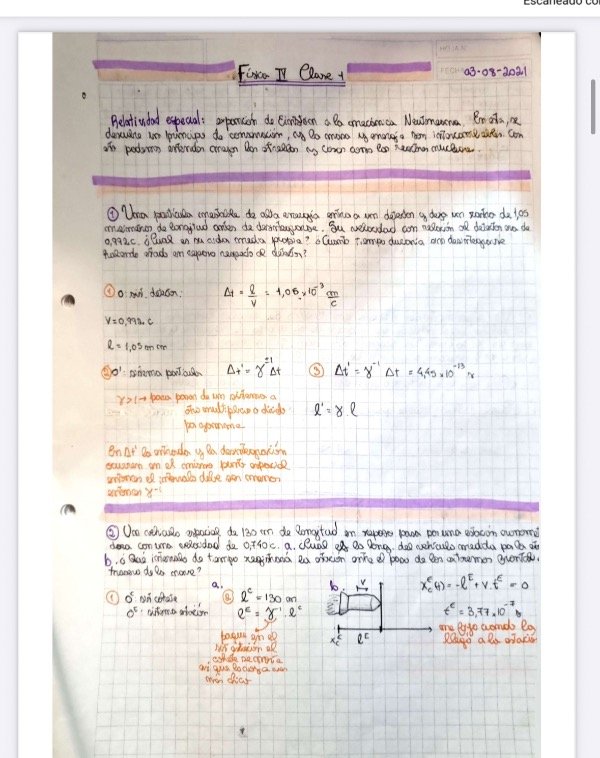 Escaneado co
Física IV Clase 1
FECHA 03-08-2021
Relatividad especial: expansión de Einstein a la mecánica Newtoniana. En esta, se
describe un principio de conservación, así la masa y energía son intercambiables. Con
esto podemos entender mejor las estrellas así como las reacciones nucleares.
① Una partícula inestable de alta energía entra a un detector y deja un rastro de 1,05
milímetros de longitud antes de desintegrarse. Su velocidad con relación al detector era de
0,992c. ¿Cuál es su vida media propia? ¿Cuánto tiempo duraría antes de desintegrarse
habiendo estado en reposo respecto al detector?
① O: sist. detector.
Δt = l/v = 1,05 × 10⁻³ m/c
v = 0,992.c
l = 1,05 mm
② O': sistema partícula
Δt' = γ^±1 Δt
③ Δt' = γ⁻¹ Δt = 4,45 × 10⁻¹³ s
γ > 1 → para pasar de un sistema a
otro multiplico o divido
por gamma
l' = γ . l
En Δt' la entrada y la desintegración
ocurren en el mismo punto espacial
entonces el intervalo debe ser menor
entonces γ⁻¹
② Un vehículo espacial de 130 m de longitud en reposo pasa por una estación cronome
dora con una velocidad de 0,740c. a. ¿Cuál es la long. del vehículo medida por la es
b. ¿Qué intervalo de tiempo registrará la estación entre el paso de los extremos frontal
trasero de la nave?
a.
b.
① Oᶜ: sist cohete
Oᴱ: sistema estación
② lᶜ = 130 m
lᴱ = γ⁻¹ . lᶜ
v
xᴱc(t) = -lᴱ + v.tᴱ = 0
tᴱ = 3,77 × 10⁻⁷ s
porque en el
sist estación el
cohete se movía
así que la long a ser
más chica
lᴱ
me fijo cuando la
llegó a la estación